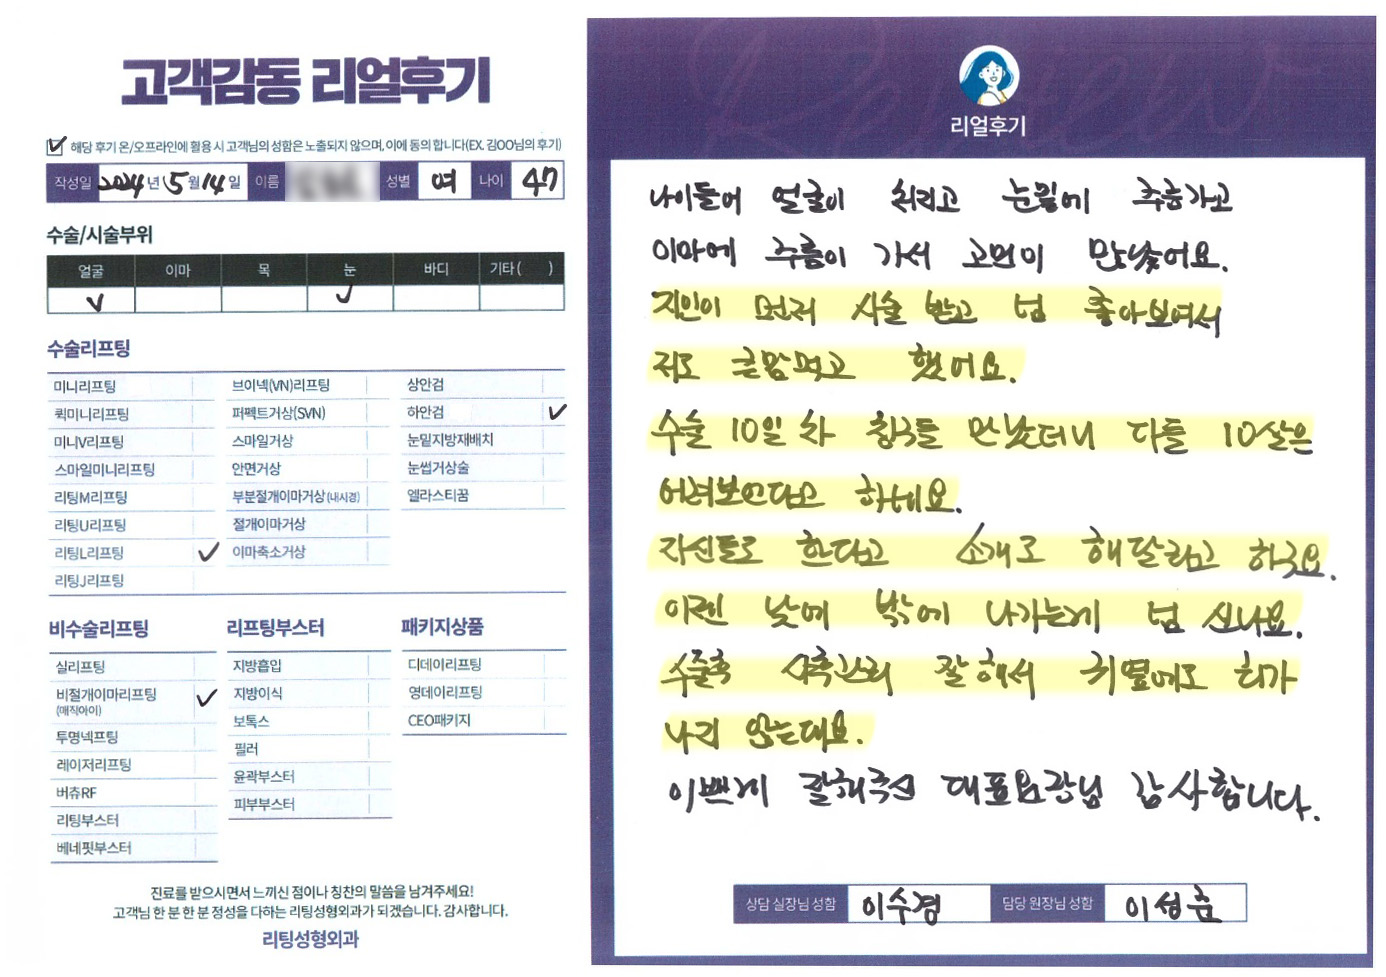 고객감동 리얼후기
✓ 해당 후기 온/오프라인에 활용 시 고객님의 성함은 노출되지 않으며, 이에 동의 합니다(EX. 김OO님의 후기)
작성일 2024년 5월 14일 이름 성별 여 나이 47
수술/시술부위
얼굴 이마 목 눈 바디 기타 ( )
✓ ✓
수술리프팅
미니리프팅
퀵미니리프팅
미니V리프팅
스마일미니리프팅
리팅M리프팅
리팅U리프팅
리팅L리프팅 ✓
리팅J리프팅
브이넥(VN)리프팅
퍼펙트거상(SVN)
스마일거상
안면거상
부분절개이마거상(내시경)
절개이마거상
이마축소거상
상안검
하안검 ✓
눈밑지방재배치
눈썹거상술
엘라스티꿈
비수술리프팅
실리프팅
비절개이마리프팅 ✓
(매직아이)
투명넥프팅
레이저리프팅
버츄RF
리팅부스터
베네핏부스터
리프팅부스터
지방흡입
지방이식
보톡스
필러
윤곽부스터
피부부스터
패키지상품
디데이리프팅
영데이리프팅
CEO패키지
진료를 받으시면서 느끼신 점이나 칭찬의 말씀을 남겨주세요!
고객님 한 분 한 분 정성을 다하는 리팅성형외과가 되겠습니다. 감사합니다.
리팅성형외과
Review
리얼후기
나이들어 얼굴이 쳐지고 눈밑에 주름가고
이마에 주름이 가서 고민이 많았어요.
지인이 먼저 시술 받고 넘 좋아보여서
저도 큰맘먹고 했어요.
수술 10일 차 친구들 만났더니 다들 10살은
어려보인다고 하네요.
자신들도 한다고 소개로 해달라고 하구요.
이젠 낮에 밖에 나가는게 넘 신나요.
수술후 사후관리 잘해서 귀옆에도 티가
나지 않는대요.
이쁘게 잘해주신 대표원장님 감사합니다.
상담 실장님 성함 이수경 담당 원장님 성함 이성준